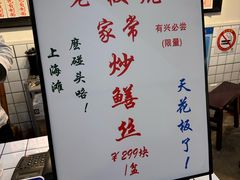 老板说
家常炒鳝丝
有兴必尝
(限量)
上海滩
麽碰头咯！
天花板了！
￥299块
1盆